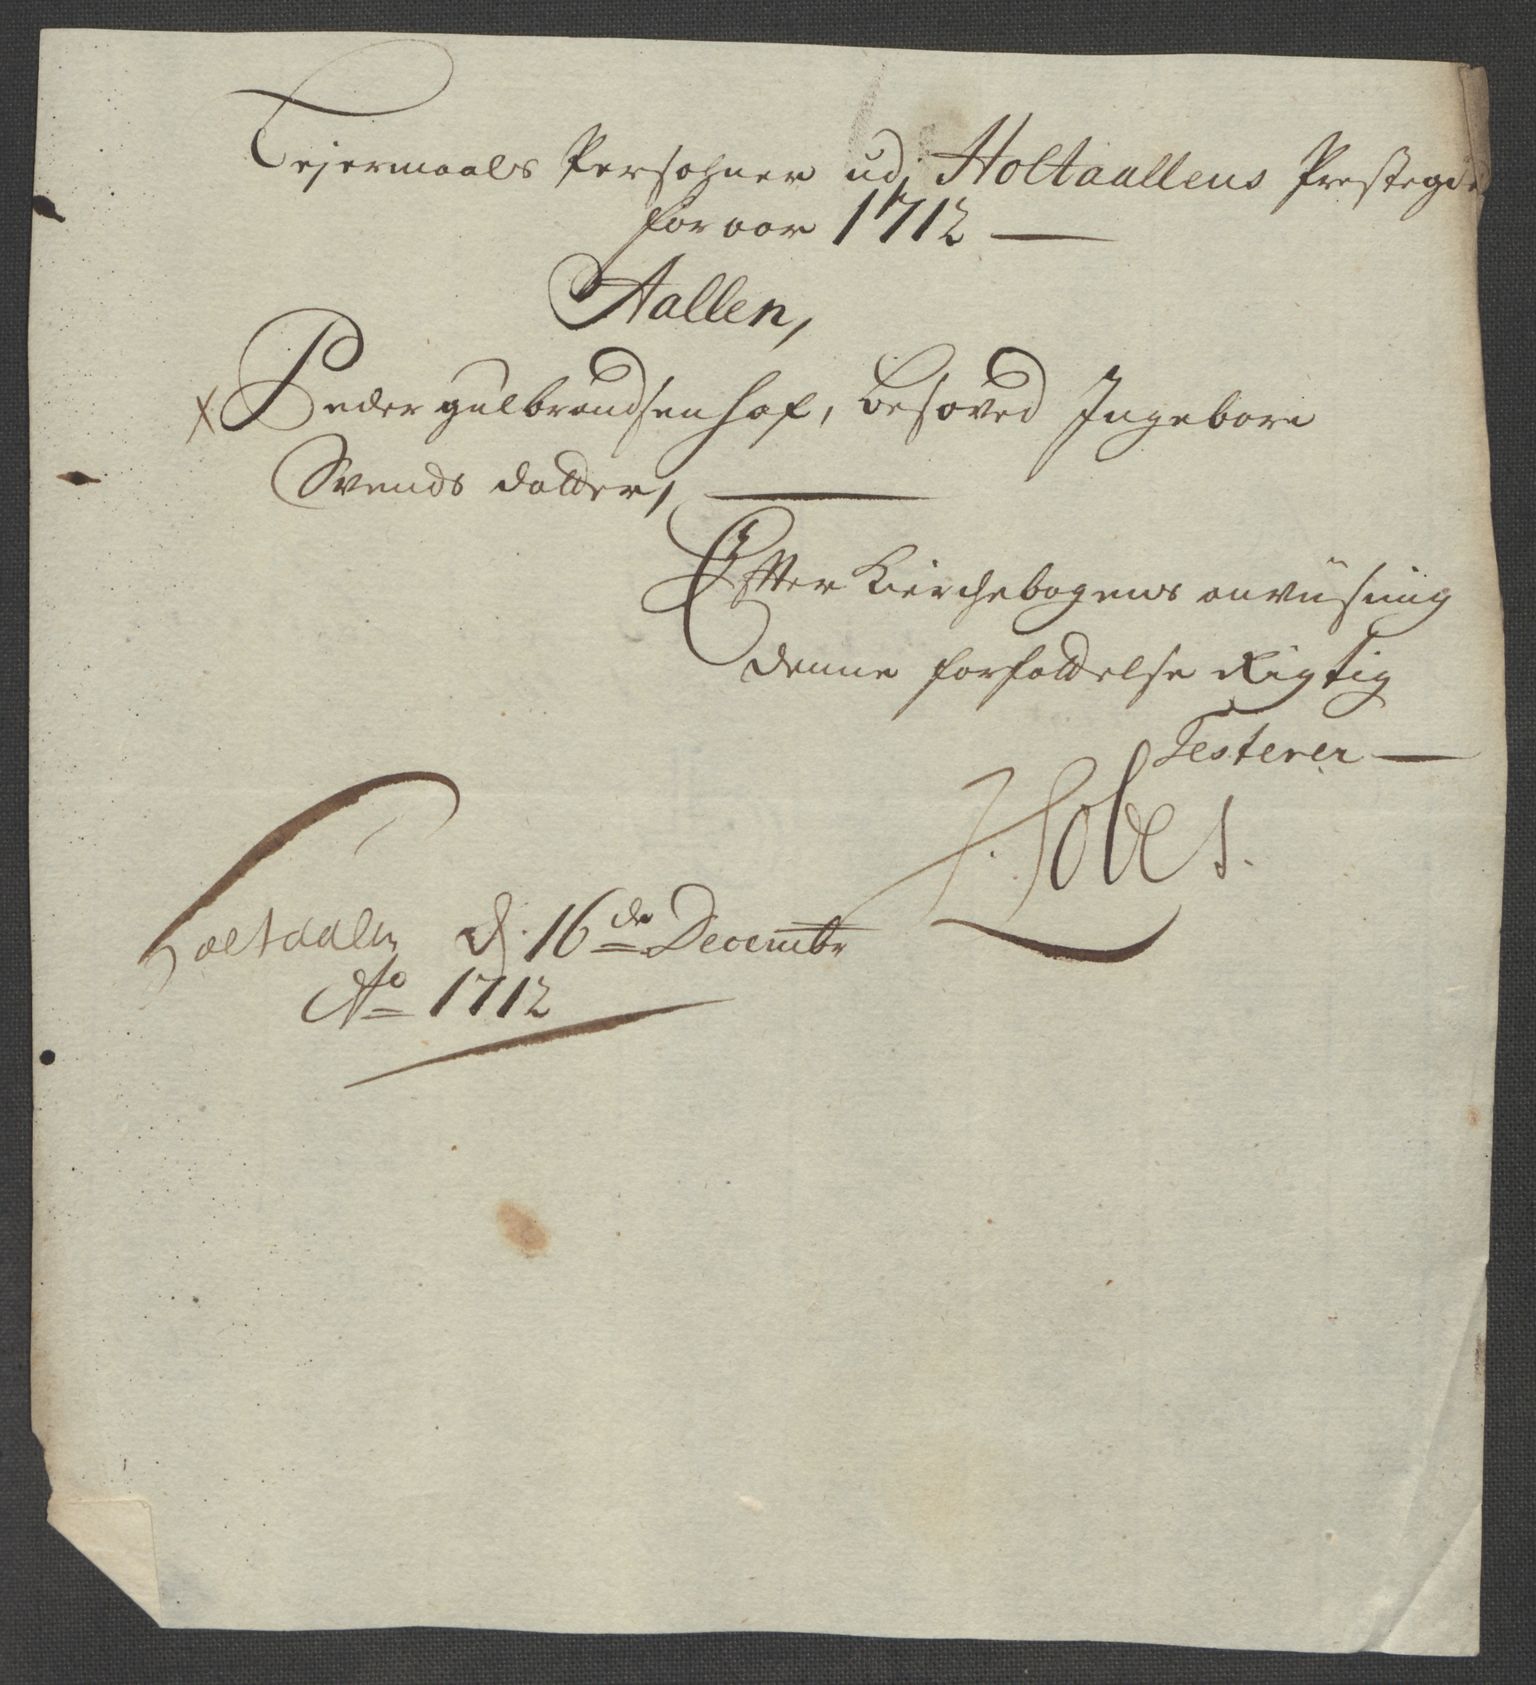 Lejermaals Persohner udj Holtaallens Prestegd
for aar 1712
Aallen,
x Peder gulbrandsen hof, besøved Ingebore
Svends datter,
Efter Kierchebogens anviisning
denne forfattelse Rigtig
Testerer
Holtaalen d. 16de Decembr
Ao 1712